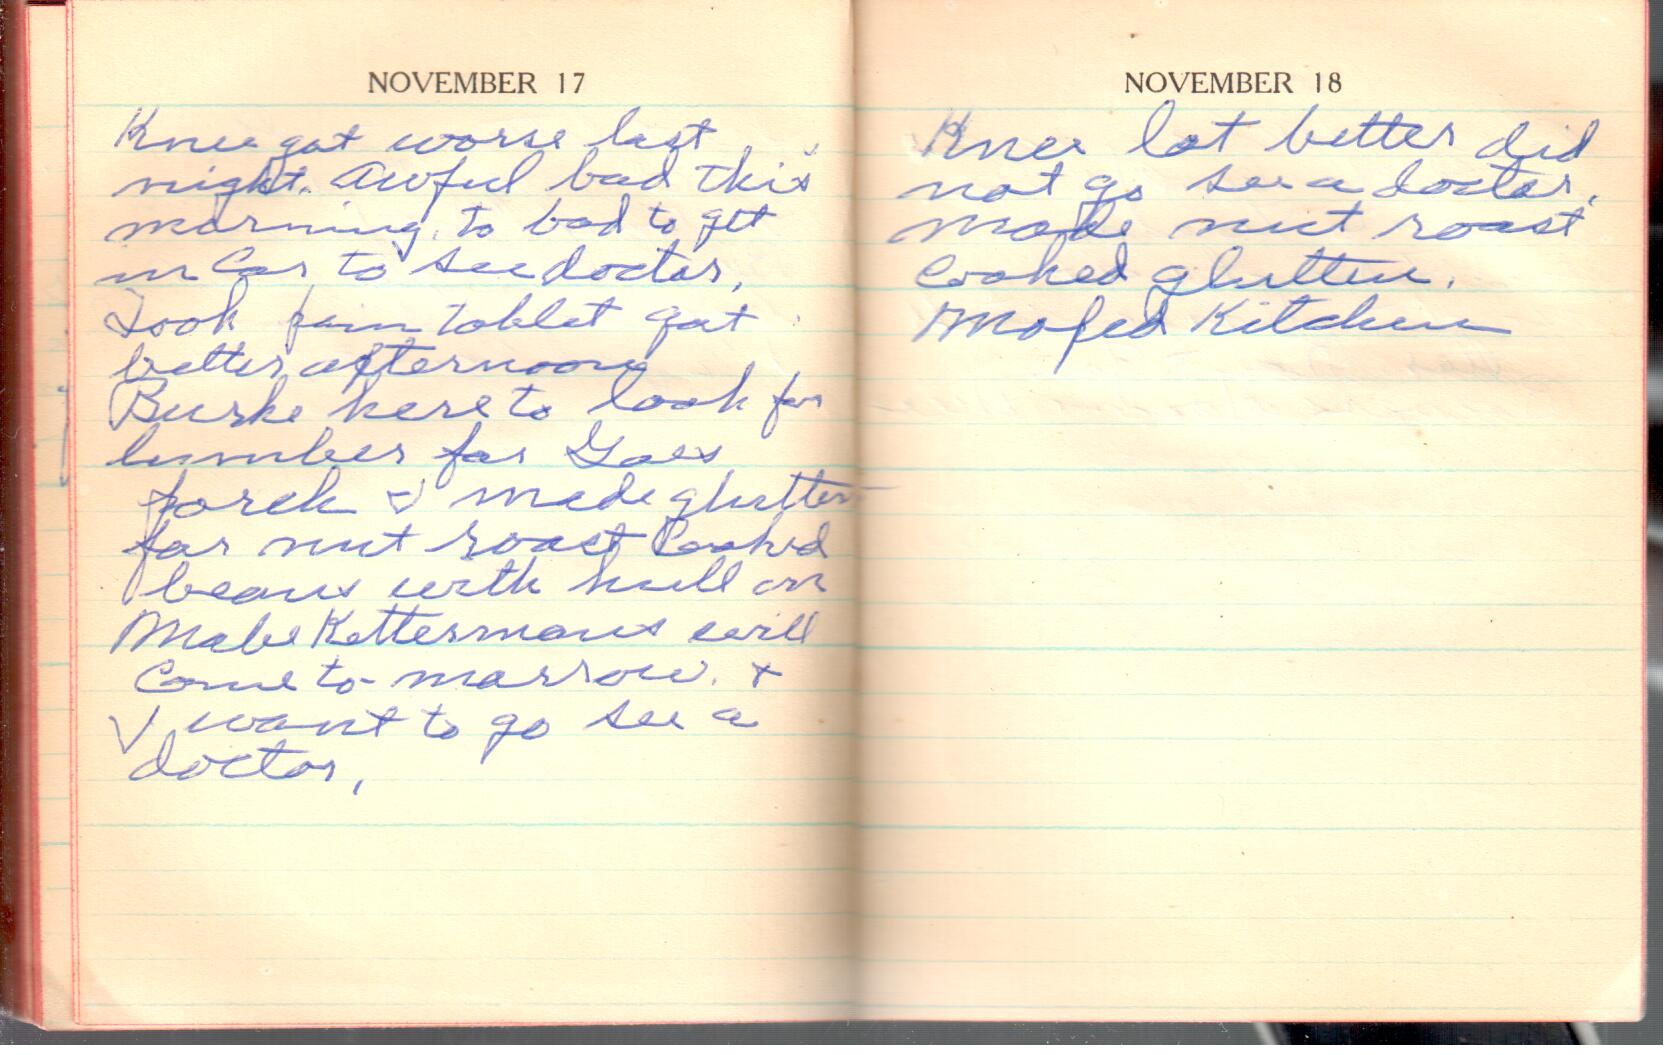 NOVEMBER 17
Knee got worse last
night. Awful bad this
morning. to bad to get
in Car to see doctor,
Took pain tablet got
better afternoon
Burke here to look for
lumber for
porch & made glutten
for nut roast Cooked
beans with hull on
Mabe Kettermans will
Come to-morrow. +
I want to go see a
doctor,
NOVEMBER 18
Knee lot better did
not go see a doctor,
Made nut roast
Cooked glutten.
Moped Kitchen